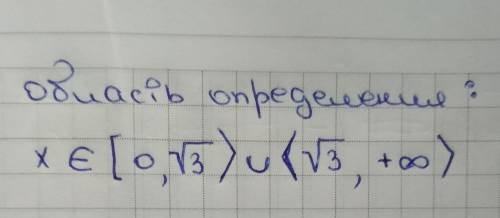 область определения:
x ∈ [0, √3⟩ ∪ ⟨√3, +∞⟩